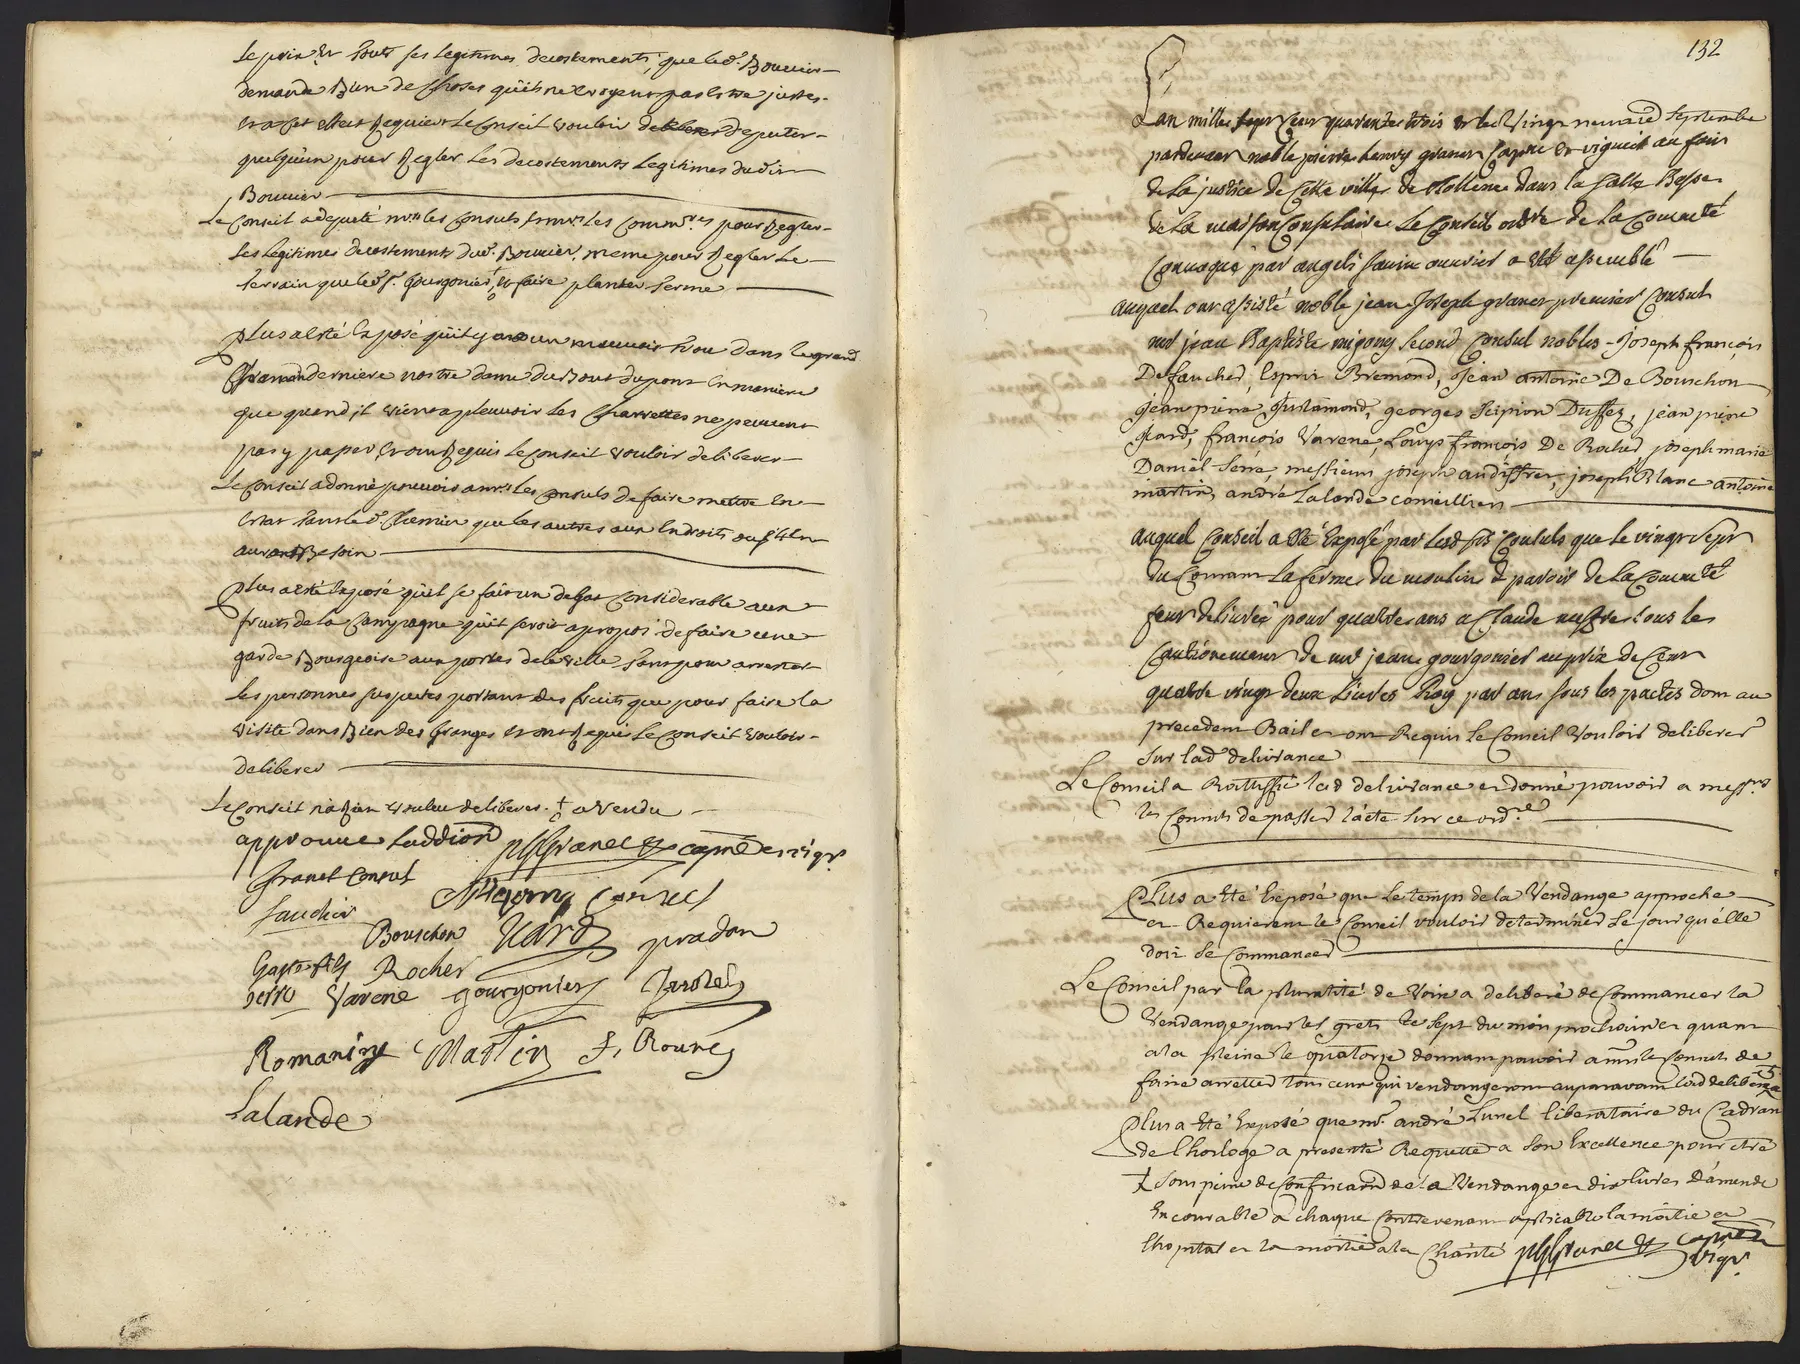 Le prix Et touts ses Legitimes decostements, que led.r Bouvier
demande Bien de Choses qu'ils ne croyent pas Estre justes
Et a cet Effect Requiert Le Conseil vouloir deputer
quelqu'un pour Regler Les decostements Legitimes dud. sr
Bouvier
Le Conseil a deputé mrs les Consuls Et mrs Les Comm.res pour Regler
Les Legitimes decostements dud.r Bouvier, meme pour Regler Le
terrain que led. sr gourgonier, Et faire planter terme
Plus a esté Exposé qu'il y a un mauvais trou dans le grand
Chemin derriere nostre dame du Bout du pont En maniere
que quand il vient a pleuvoir Les Charrettes ne peuvent
pas y passer, Et ont Requis Le Conseil vouloir deliberer
Le Conseil a donné pouvoir a mrs Les Consuls de faire mettre En
Estat tant led. Chemin que Les autres aux Endroits ou il En
auront Besoin
Plus a esté Exposé qu'il se fait un degat Considerable aux
fruits de la Campagne qu'il seroit a propos de faire une
garde Bourgeoise aux portes de la ville tant pour arrester
Les personnes suspectes portant des fruits que pour faire la
visite dans Bien des granges Et ont Requis Le Conseil vouloir
deliberer
Le Conseil n'a Rien voulu deliberer. + a vendu
approuve Laddion phgranet Et capne et vigr.
Granet Consul
faucher Migony Consul
Bouschon Icard pradon
Rocher
Serre Varene gourgonier
Romaning Martin f. Roure
Lalande
132
L'an mille sept Cent quarante trois Et le Vingt neuf Septembre
pardevant noble pierre henry granet Capne Et viguier au fait
de La justice de Cette ville de Bollene dans la Salle Basse
de La maison Consulaire Le Conseil ordre de La Commté
Convoqué par angeli savin ouvrier a Esté assemblé
auquel ont assisté noble jean Joseph granet premier Consul
mr jean Baptiste migony Second Consul nobles Joseph françois
De faucher, Esprit Bremond, Jean antoine De Bouschon
jean pierre Justamond, georges Scipion Duffez, jean pierre
Icard, françois Varene, Louys françois De Rocher joseph marie
Daniel Serre, messieurs joseph audiffret, joseph Blanc antoine
martin, andré Lalande Conseilliers
auquel Conseil a Esté Exposé par Lesd. srs Consuls que Le vingt sept
du Courant La ferme du moulin a paroir de La Commté
feut delivrée pour quattre ans a Claude sous les
Cautionement de mr jean gourgonier au prix de Cent
quattre vingt deux Livres Roy par an sous les pactes dont au
precedent Bail et ont Requis Le Conseil Vouloir deliberer
Sur lad. delivrance
Le Conseil a Rattiffié lad delivrance et donné pouvoir a messrs
les Consuls de passer l'acte Sur ce ord.re
Plus a Esté Exposé que Le temps de la Vendange approche
et Requierent le Conseil vouloir determiner Le jour qu'elle
doit Se Commancer
Le Conseil par la pluralité de Voix a deliberé de Commancer la
Vendange pour les grets le Sept du mois prochain et quant
a la pleine le quatorze donnant pouvoir a mrs le Consuls de
faire arretter tous ceux qui vendangeront auparavant lad deliberan +
Plus a Esté Exposé que mr andré Lunel liberataire du Cadran
de l'horloge a presenté Requette a Son Excellence pour etre
+ Sous peine de Confiscaon de la Vendange et dix livres D'amende
Encourable a chaque Contrevenant applicable la moitie a
l'hopital et la moitié a la Charité phgranet Et capne et
vigr.